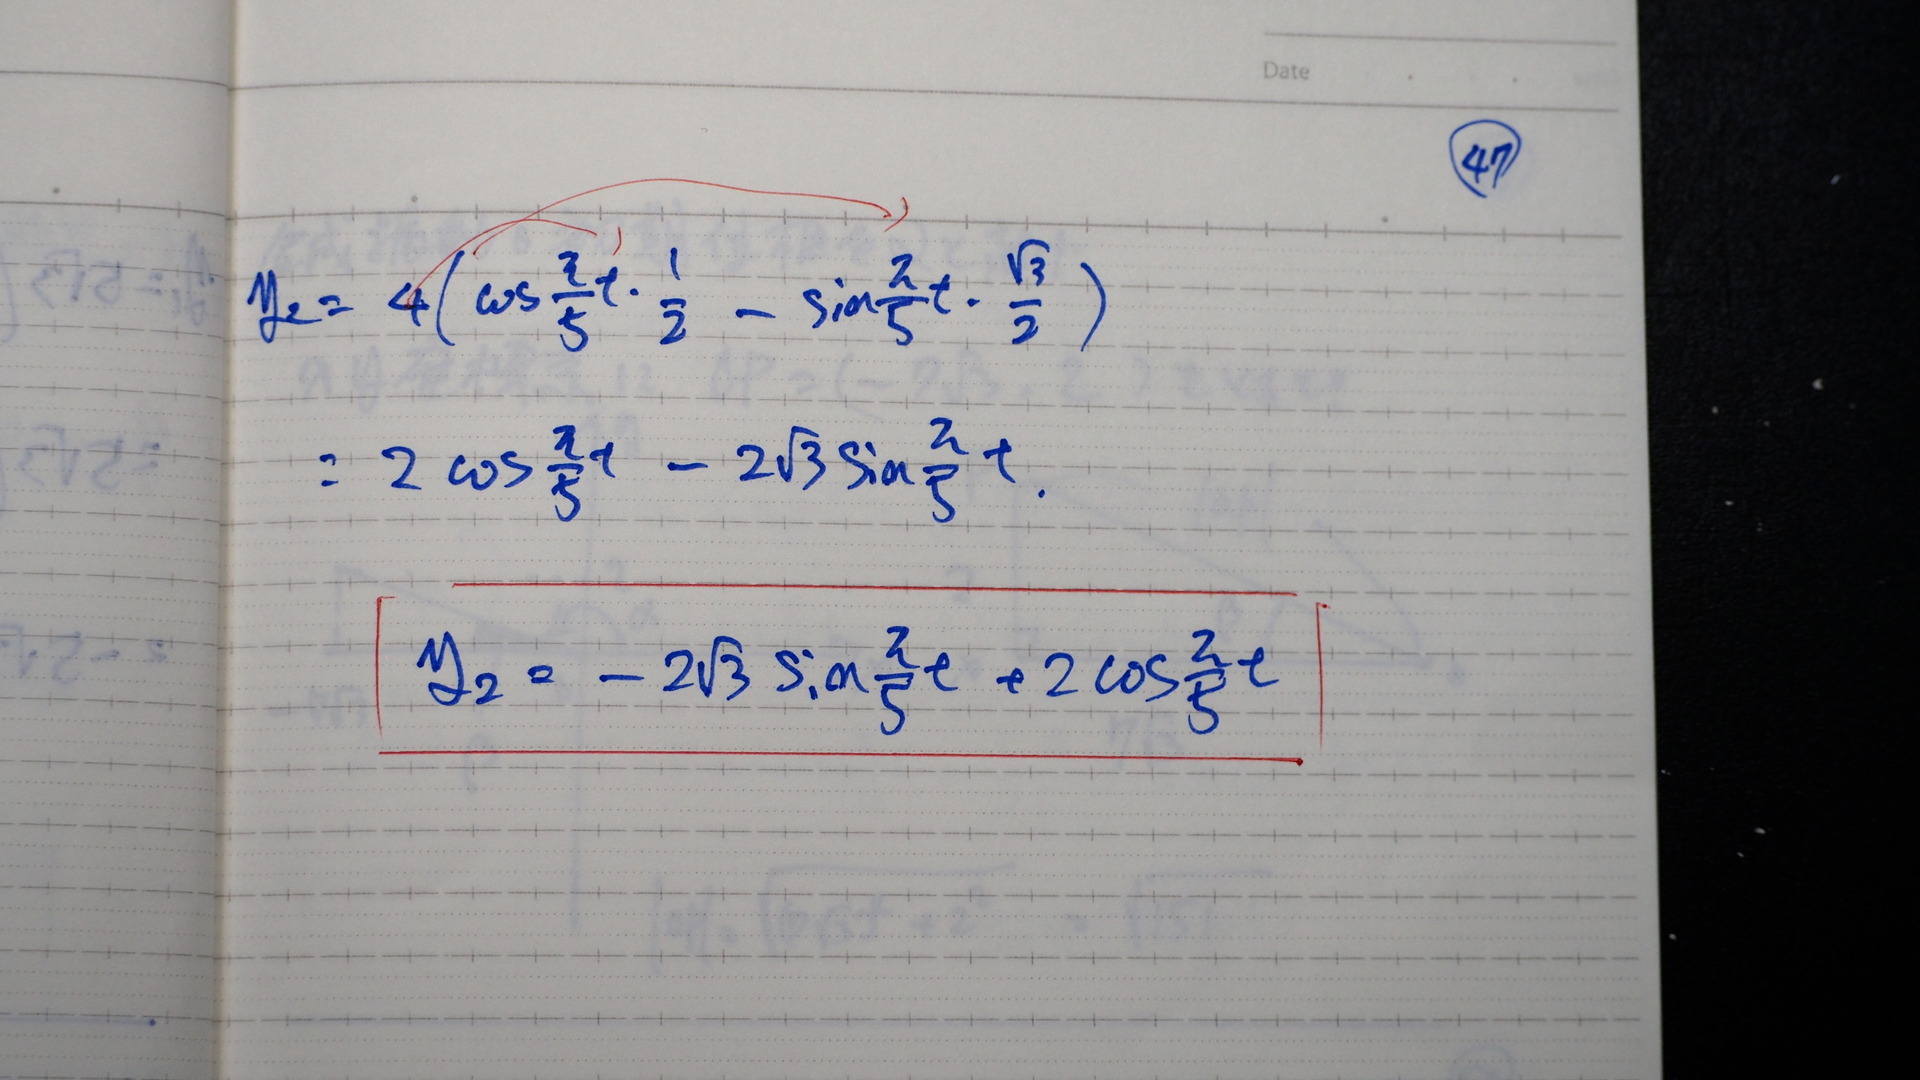 Date
47
y₂ = 4(cos π/5 t · 1/2 − sin π/5 t · √3/2)
= 2 cos π/5 t − 2√3 sin π/5 t.
y₂ = − 2√3 sin π/5 t + 2 cos π/5 t